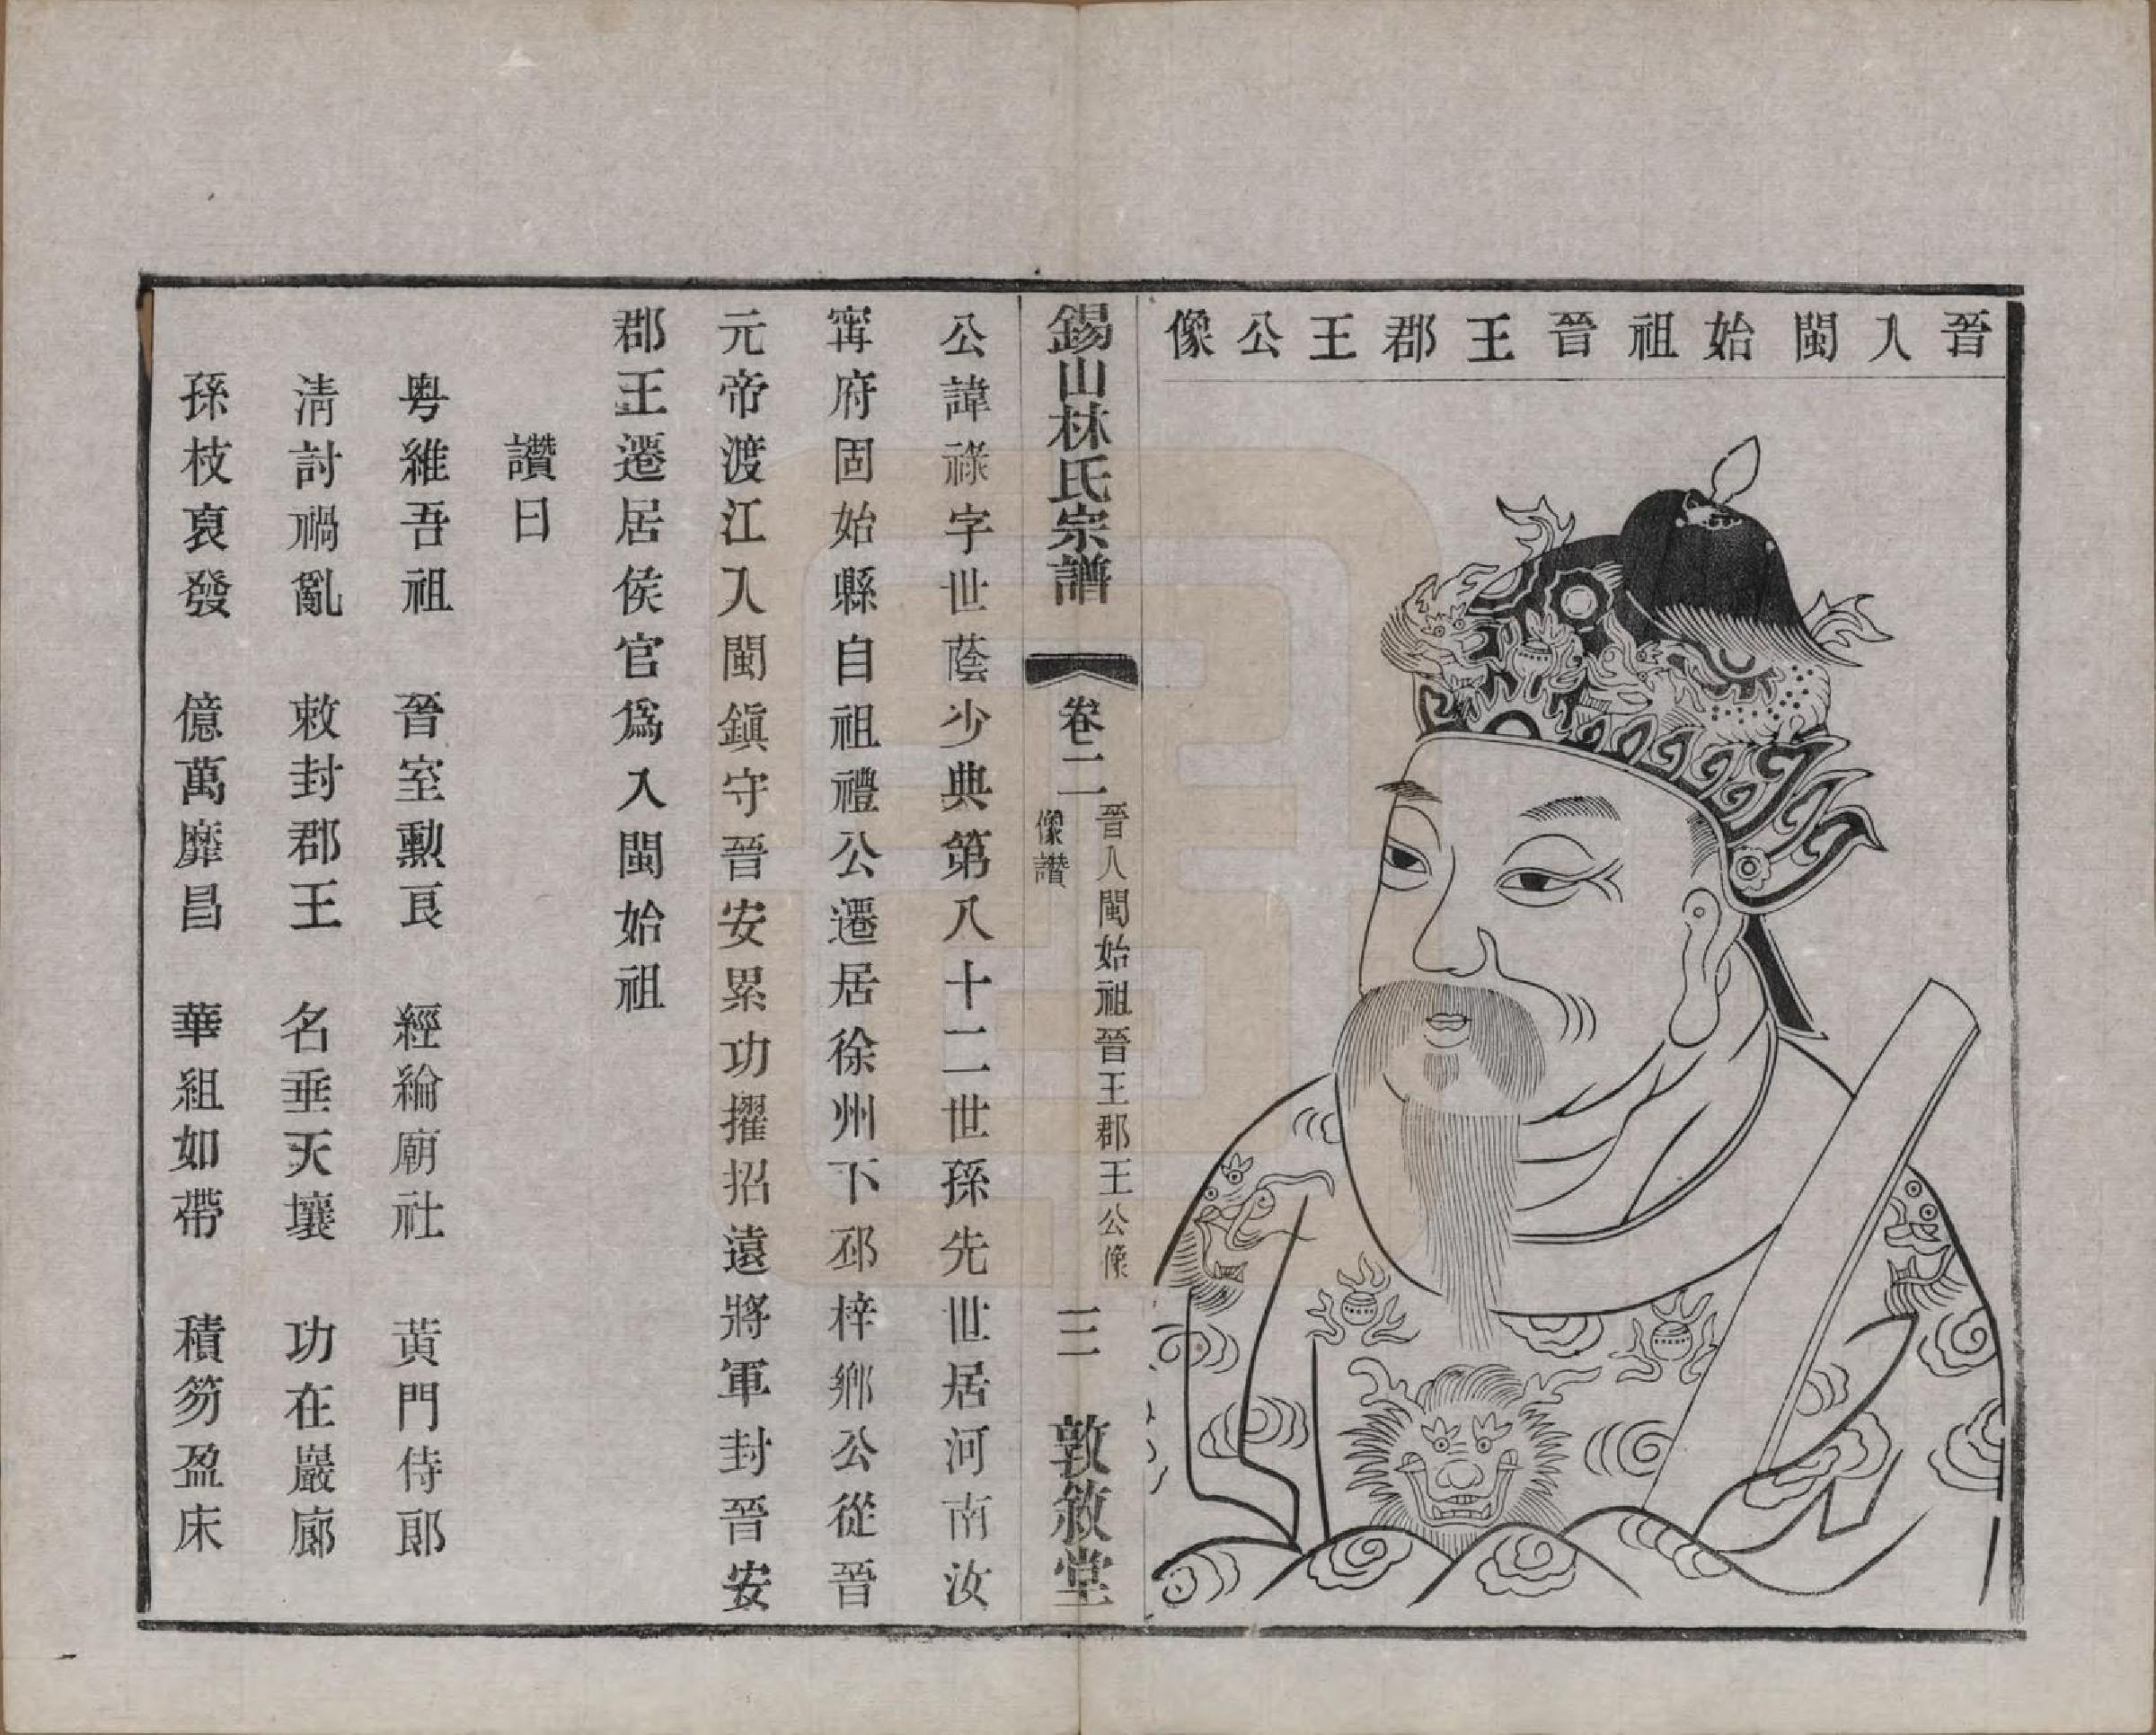 晉入閩始祖晉王郡王公像
錫山林氏宗譜
卷二
晉入閩始祖晉王郡王公像
像讚
三
敦敘堂
公諱祿字世蔭少典第八十二世孫先世居河南汝
甯府固始縣自祖禮公遷居徐州下邳梓鄉公從晉
元帝渡江入閩鎭守晉安累功擢招遠將軍封晉安
郡王遷居侯官爲入閩始祖
讚曰
粤維吾祖　晉室勳良　經綸廟社　黃門侍郎
淸討禍亂　敕封郡王　名垂天壤　功在巖廊
孫枝裒發　億萬靡昌　華組如帶　積笏盈床